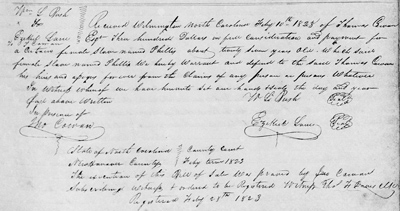 Wm C Bush
&
Ezekiel Lane
To T Cowan
Received Wilmington North Carolina Feby 10th 1823 of Thomas Cowan
Esqr Three hundred Dollars in full consideration and payment for
a Certain female Slave named Phillis about twenty seven years old. Which said
female Slave named Phillis We hereby Warrant and defend to the said Thomas Cowan
his heirs and assigns forever from the Claims of any person or persons Whatever
In Witness whereof we have hereunto set our hands & seals the day and year
first above Written
Wm C Bush
In presence of
Jno Cowan
Ezekiel Lane
State of North Carolina County Court
New Hanover County Feby term 1823
The execution of this Bill of Sale Was proved by Jno Cowan
Subscribing Witness & ordered to be Registered Witness Thos F Davis Clk
Registered Feby 28th 1823